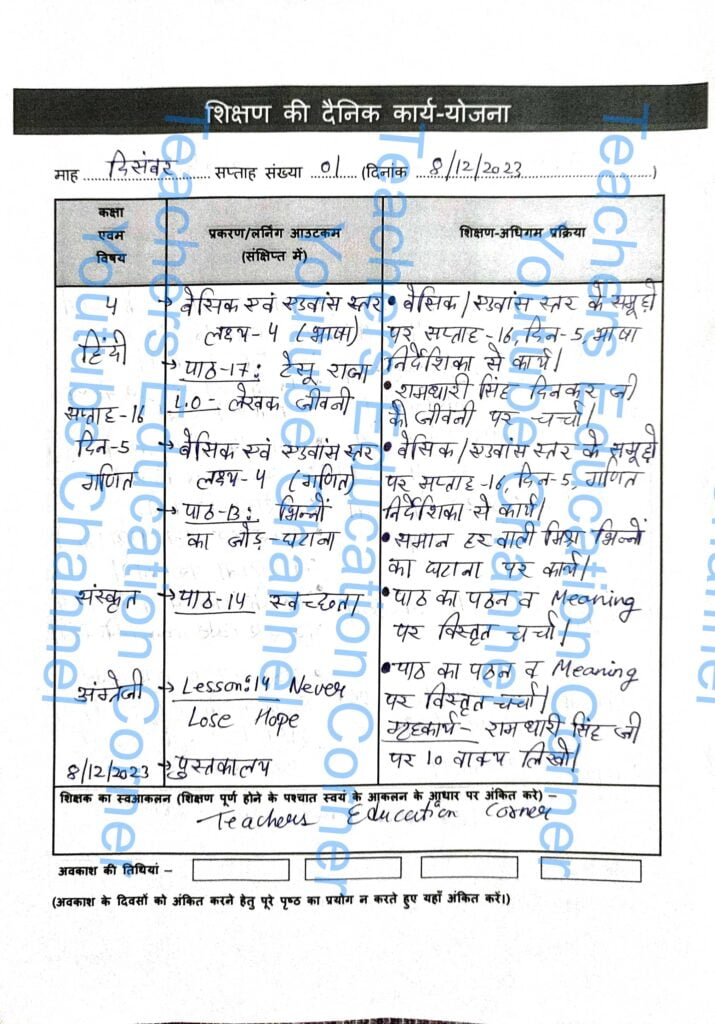 शिक्षण की दैनिक कार्य-योजना
माह दिसंबर सप्ताह संख्या 01 (दिनांक 8/12/2023)
कक्षा एवम विषय
प्रकरण/लर्निंग आउटकम (संक्षिप्त में)
शिक्षण-अधिगम प्रक्रिया
4
हिंदी
सप्ताह-16
दिन-5
→ बेसिक एवं एडवांस स्तर
लक्ष्य-4 (भाषा)
→ पाठ-17: टेसू राजा
L.O- लेखक जीवनी
• बेसिक/एडवांस स्तर के समूहो
पर सप्ताह-16, दिन-5, भाषा
निर्देशिका से कार्य।
• रामधारी सिंह दिनकर जी
की जीवनी पर चर्चा।
गणित
→ बेसिक एवं एडवांस स्तर
लक्ष्य-4 (गणित)
→ पाठ-13: भिन्नों
का जोड़-घटाना
• बेसिक/एडवांस स्तर के समूहो
पर सप्ताह-16, दिन-5, गणित
निर्देशिका से कार्य।
• समान हर वाली मिश्र भिन्नों
का घटाना पर कार्य।
संस्कृत
→ पाठ-14 स्वच्छता
• पाठ का पठन व Meaning
पर विस्तृत चर्चा।
अंग्रेजी
→ Lesson:14 Never
Lose Hope
• पाठ का पठन व Meaning
पर विस्तृत चर्चा।
गृहकार्य- रामधारी सिंह जी
पर 10 वाक्य लिखो।
8/12/2023 → पुस्तकालय
शिक्षक का स्वआकलन (शिक्षण पूर्ण होने के पश्चात स्वयं के आकलन के आधार पर अंकित करे) –
Teachers Education Corner
अवकाश की तिथियां –
(अवकाश के दिवसों को अंकित करने हेतु पूरे पृष्ठ का प्रयोग न करते हुए यहाँ अंकित करें।)
Teachers Education Corner
Youtube Channel
Teachers Education Corner
Youtube Channel
Teachers Education Corner
Youtube Channel